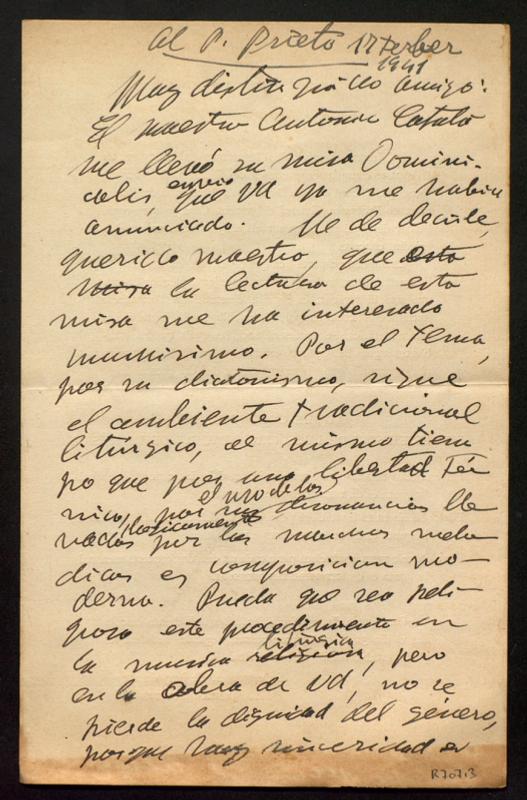 Al P. Prieto 17 Febrer
1941
Muy distinguido amigo:
El maestro Antonio Catalá
me llevó su misa Domini-
calis, envio que Vd ya me había
anunciado. He de decirle,
querido maestro, que esta
misa la lectura de esta
misa me ha interesado
muchisimo. Por el tema,
por su diatonismo, sigue
el ambiente tradicional
litúrgico, al mismo tiem
po que por una libertad Téc
nica, por el uso de las disonancias lle
vadas plasticamente por las marchas meló
dicas es composicion mo-
derna. Pueda que sea peli-
groso este procedimiento en
la musica religiosa litúrgica, pero
en la obra de Vd, no se
pierde la dignidad del género,
porque hay sinceridad en
R707.3